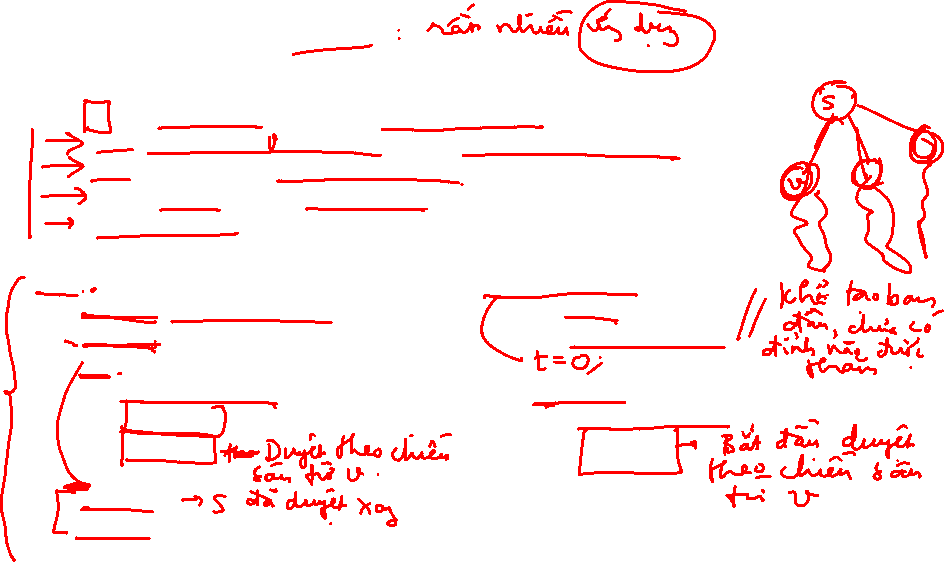 : rất nhiều ứng dụng
S
v
v
// Khởi tạo ban
đầu, chưa có
đỉnh nào được
thăm
t=0;
Duyệt theo chiều
sâu từ v
→ S đã duyệt xong
→ Bắt đầu duyệt
theo chiều sâu
từ v